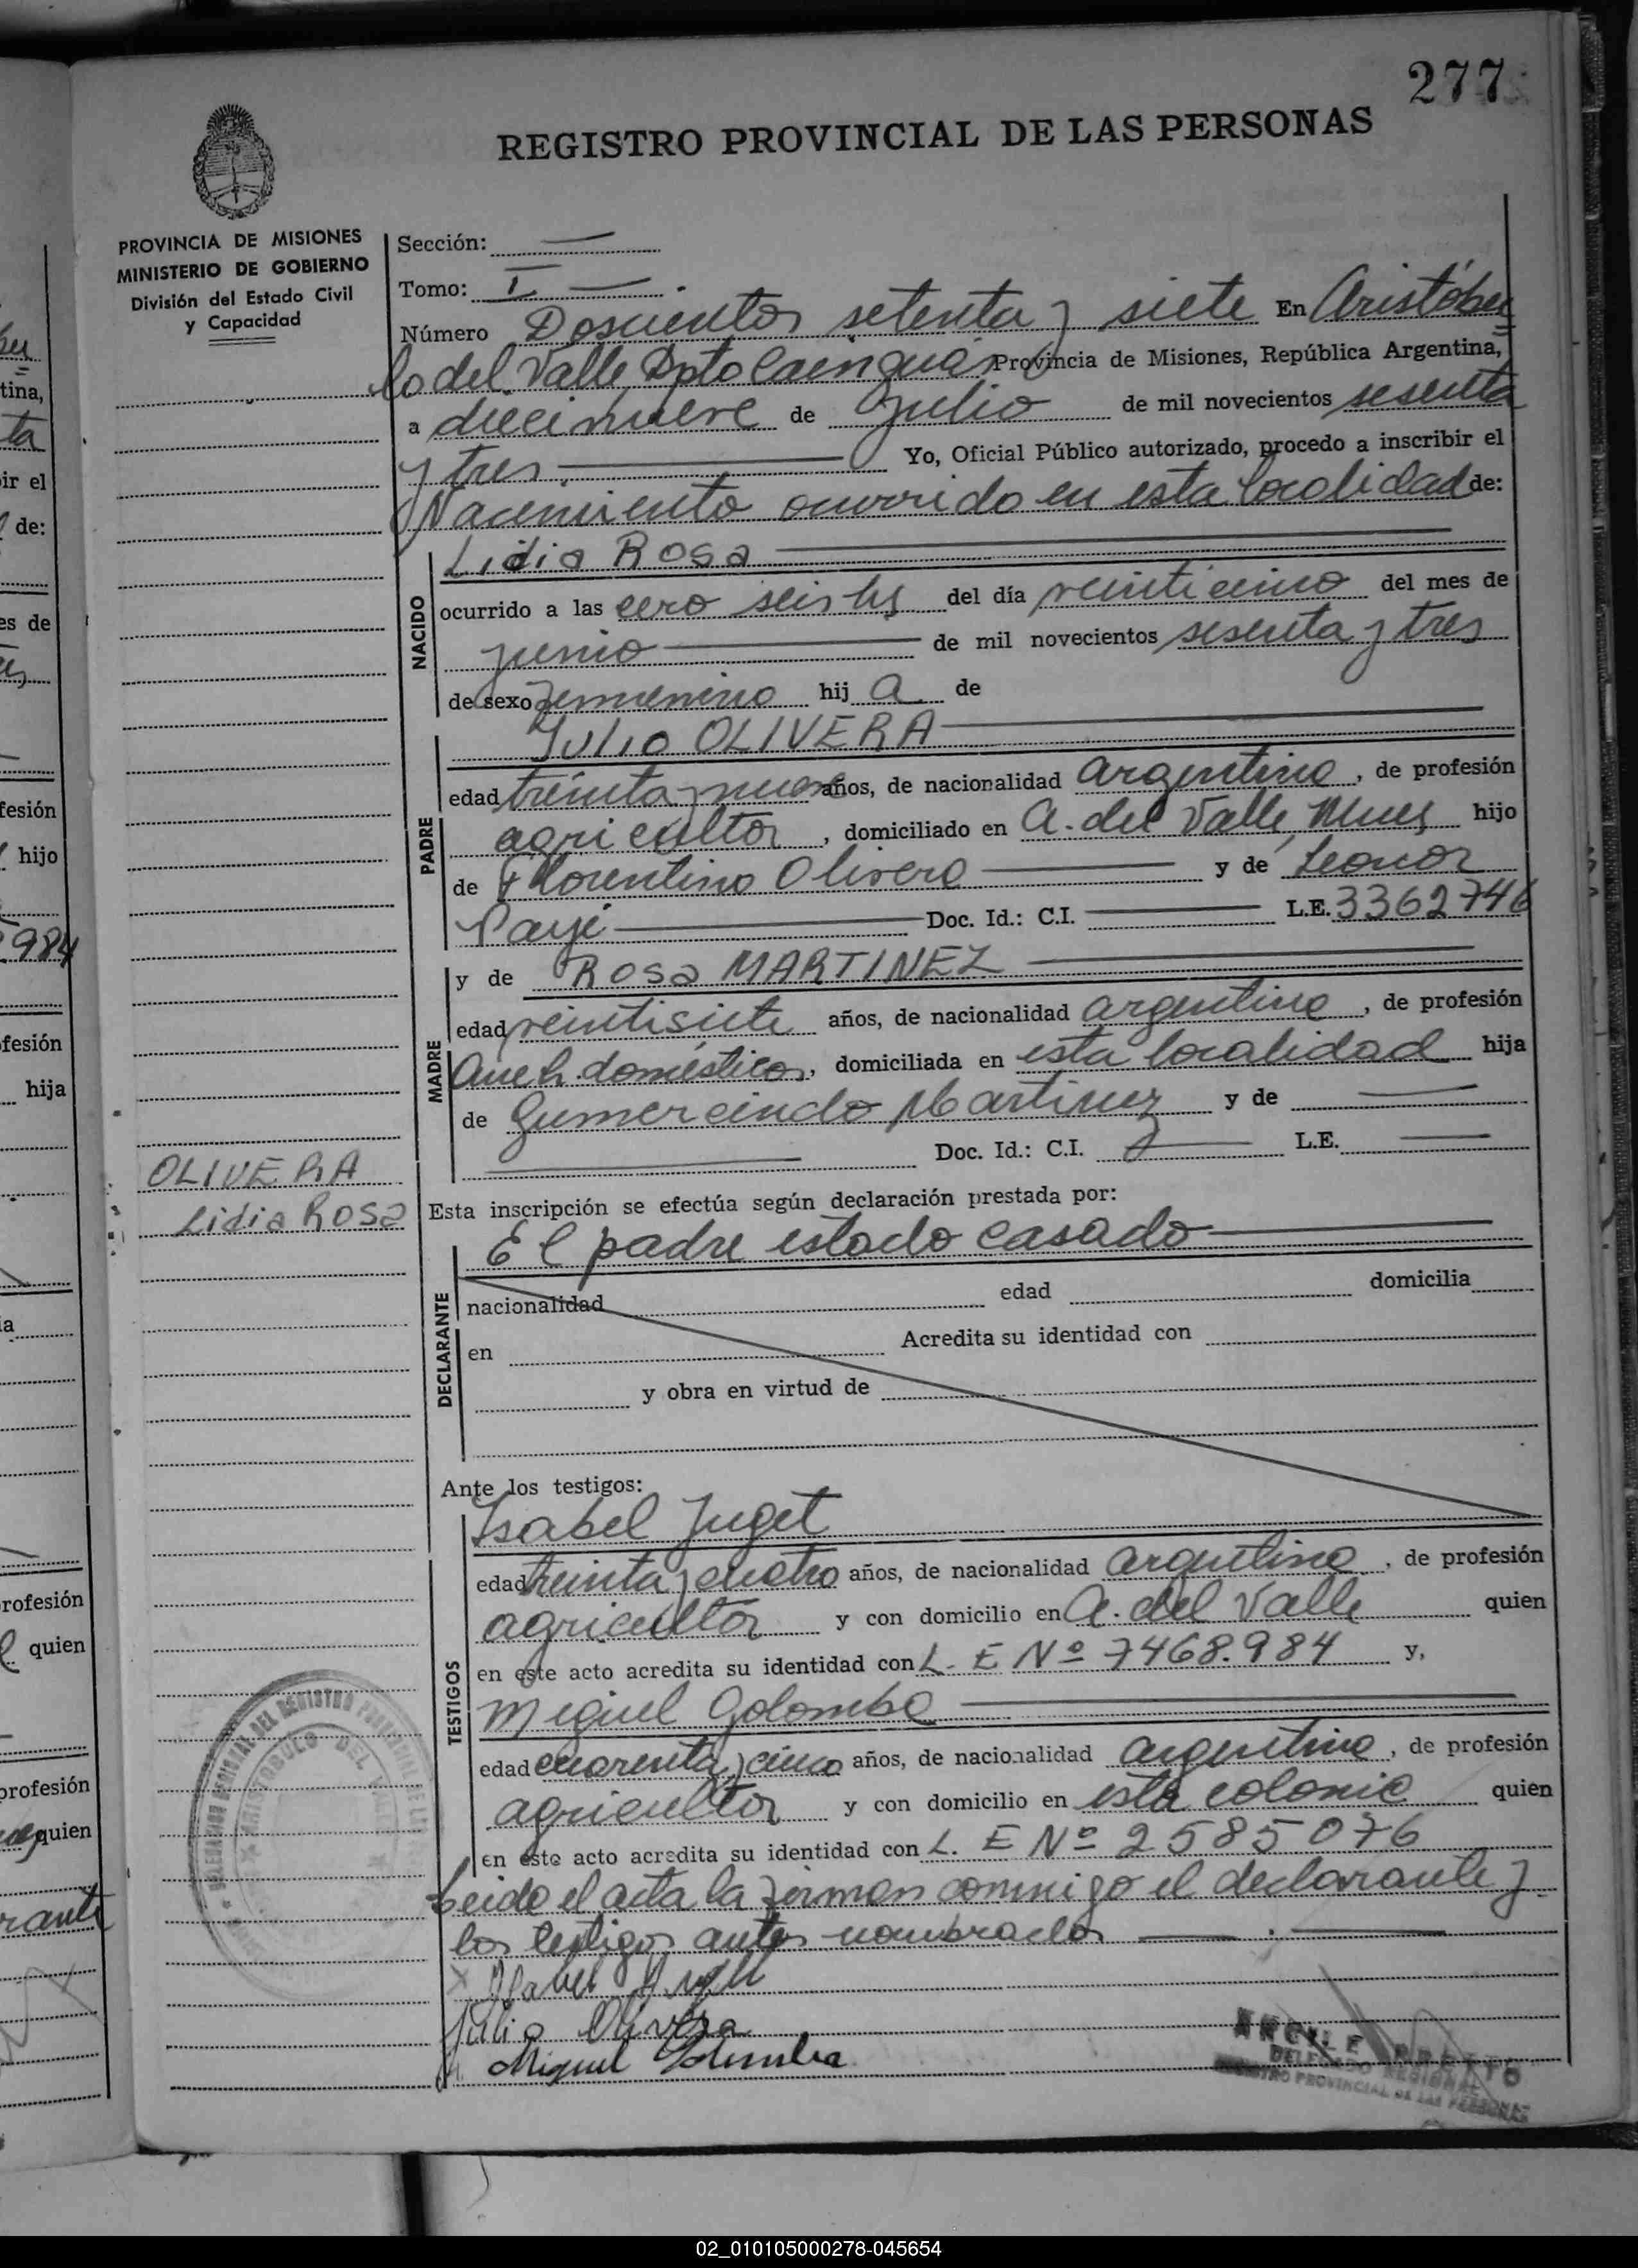 277
REGISTRO PROVINCIAL DE LAS PERSONAS
PROVINCIA DE MISIONES
MINISTERIO DE GOBIERNO
División del Estado Civil
y Capacidad
Sección: —
Tomo: I —
Número Doscientos setenta y siete En Aristóbu
lo del Valle Dpto Cainguás Provincia de Misiones, República Argentina,
a diecinueve de Julio de mil novecientos sesenta
y tres — Yo, Oficial Público autorizado, procedo a inscribir el
Nacimiento ocurrido en esta localidad de:
NACIDO
Lidia Rosa —
ocurrido a las cero seis hs del día veinticinco del mes de
junio — de mil novecientos sesenta y tres
de sexo femenino hij a de
PADRE
Julio OLIVERA —
edad treinta y nueve años, de nacionalidad argentina, de profesión
agricultor, domiciliado en A. del Valle, Mnes hijo
de Florentino Olivera — y de Leonor
Payé — Doc. Id.: C.I. — L.E. 3362746
MADRE
y de Rosa MARTINEZ —
edad veintisiete años, de nacionalidad argentina, de profesión
Queh domésticos, domiciliada en esta localidad hija
de Gumercindo Martinez y de —
— Doc. Id.: C.I. — L.E. —
OLIVERA
Lidia Rosa
Esta inscripción se efectúa según declaración prestada por:
DECLARANTE
El padre estado casado —
nacionalidad edad domicilia
en Acredita su identidad con
y obra en virtud de
Ante los testigos:
TESTIGOS
Isabel Juget
edad treinta y cuatro años, de nacionalidad argentina, de profesión
agricultor y con domicilio en A. del Valle quien
en este acto acredita su identidad con L. E Nº 7468.984 y,
Miguel Golomba —
edad cuarenta y cinco años, de nacionalidad argentina, de profesión
agricultor y con domicilio en esta colonia quien
en este acto acredita su identidad con L. E Nº 2585076
Leido el acta la firman conmigo el declarante y
los testigos antes nombrados — . —
Isabel Juget
Julio Olivera
Miguel Golomba
DELEGADO REGIONAL
REGISTRO PROVINCIAL DE LAS PERSONAS
ARISTOBULO DEL VALLE
02_010105000278-045654